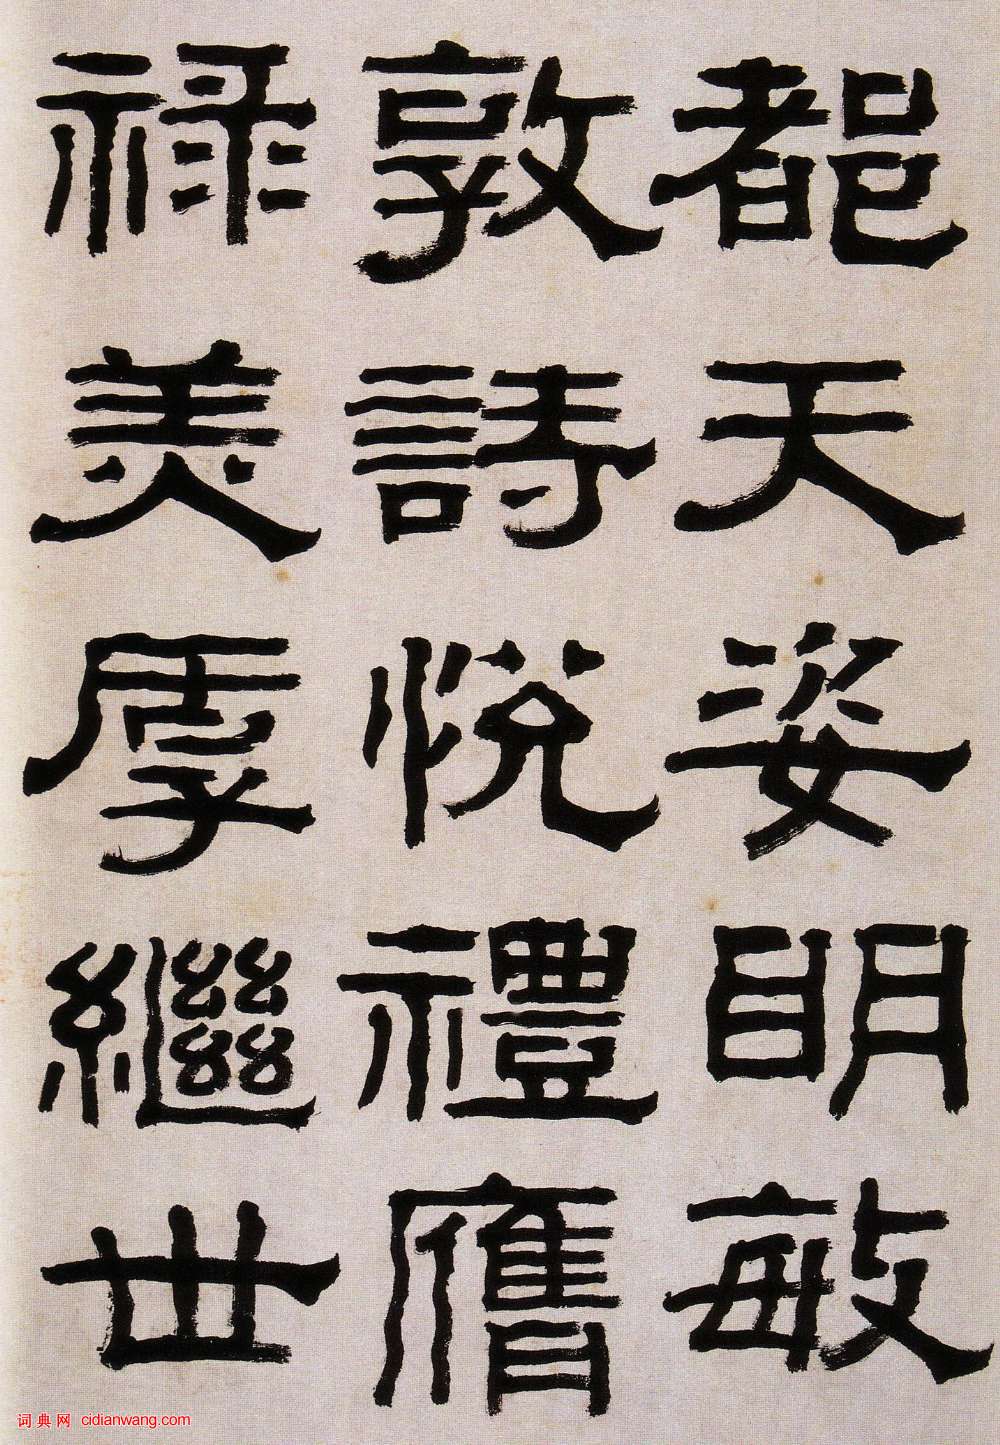 都天姿明敏
敦詩悅禮膺
祿美厚繼世
词典网 cidianwang.com